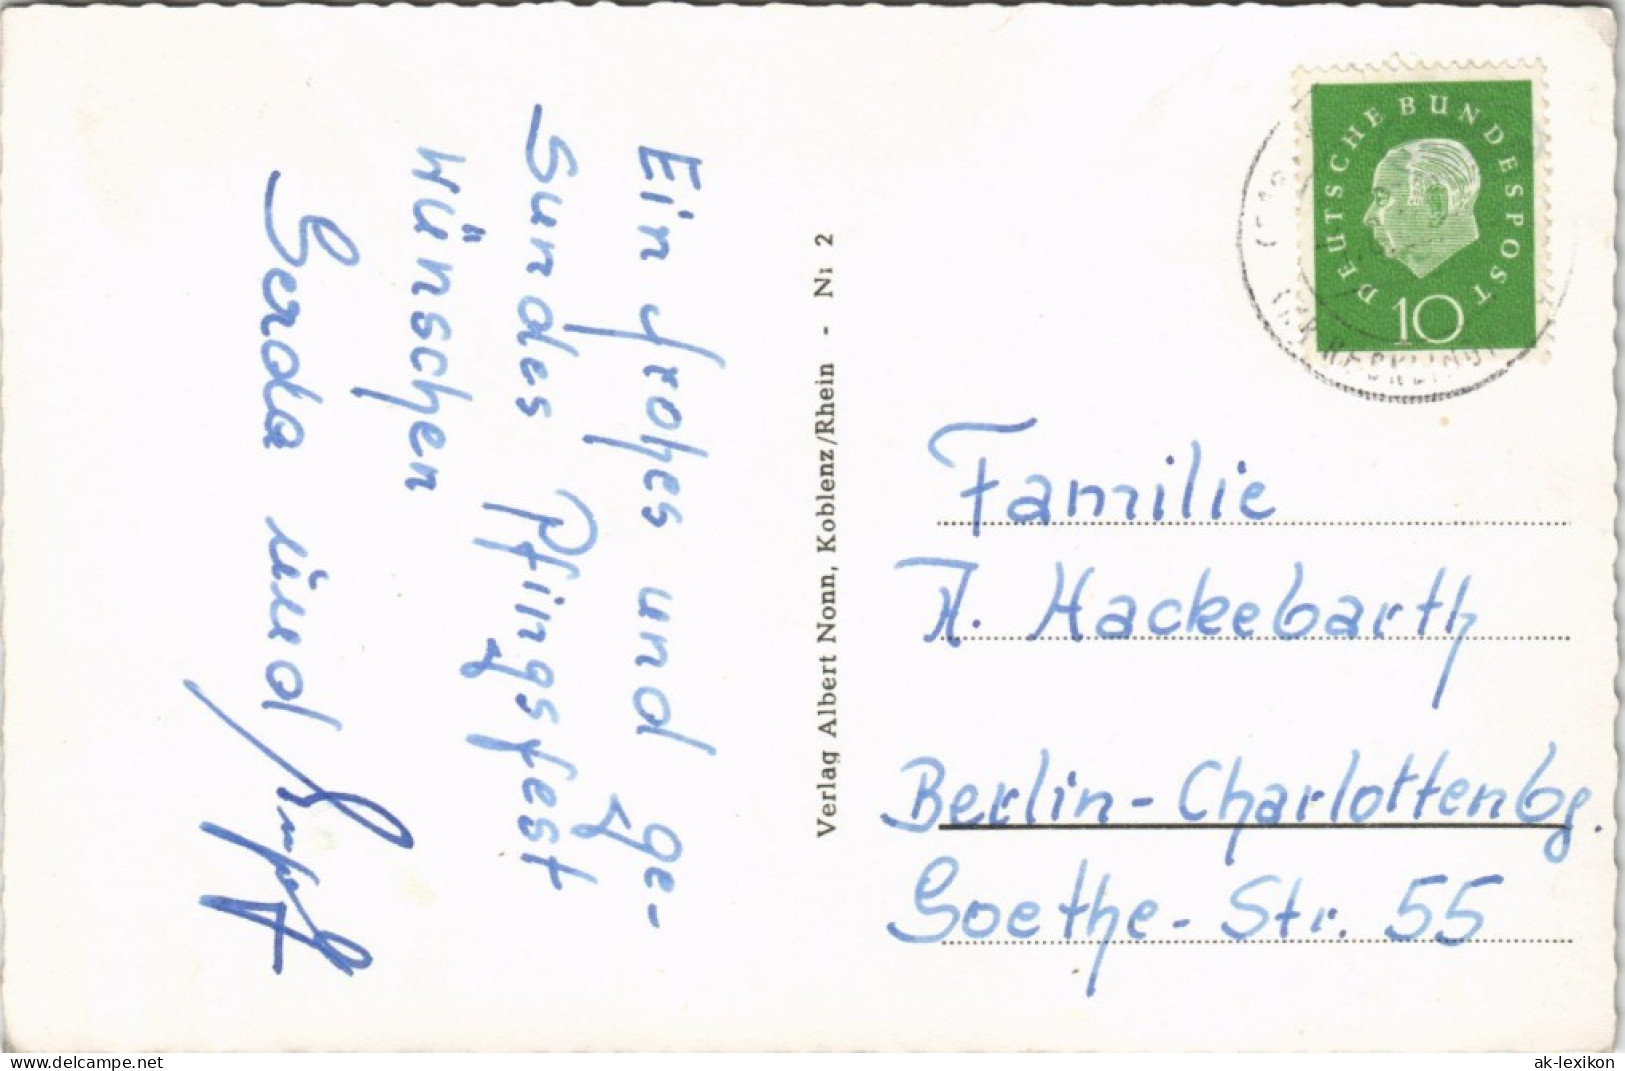 Ein frohes und ge-
sundes Pfingsfest
wünschen
Gerda und
Verlag Albert Nonn, Koblenz/Rhein - Nr 2
DEUTSCHE BUNDESPOST
10
Familie
A. Hackebarth
Berlin-Charlottenbg.
Goethe-Str. 55
www.delcampe.net
ak-lexikon